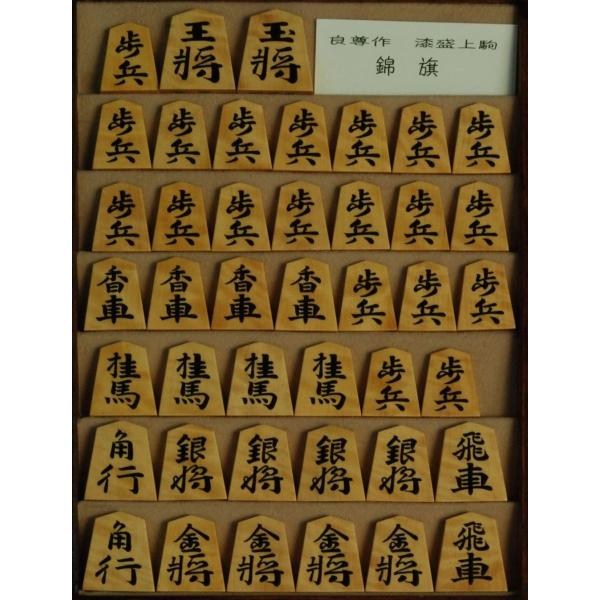 歩兵 王将 玉将
良尊作 漆盛上駒
錦旗
歩兵 歩兵 歩兵 歩兵 歩兵 歩兵 歩兵
歩兵 歩兵 歩兵 歩兵 歩兵 歩兵 歩兵
香車 香車 香車 香車 歩兵 歩兵 歩兵
桂馬 桂馬 桂馬 桂馬 歩兵 歩兵
角行 銀将 銀将 銀将 銀将 飛車
角行 金将 金将 金将 金将 飛車